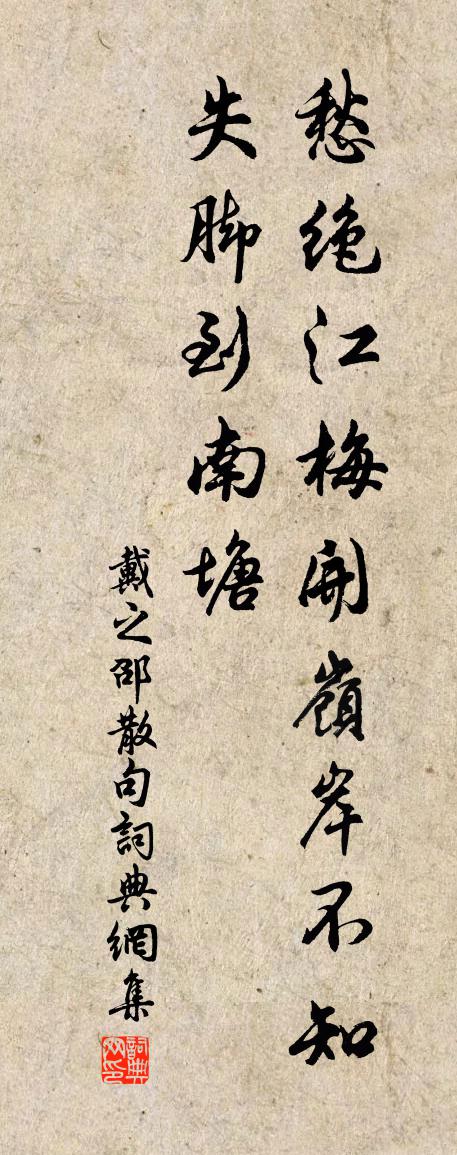 愁絶江梅開嶺岸不知
失脚到南塘
戴之邵散句詞典網集
詞典網印